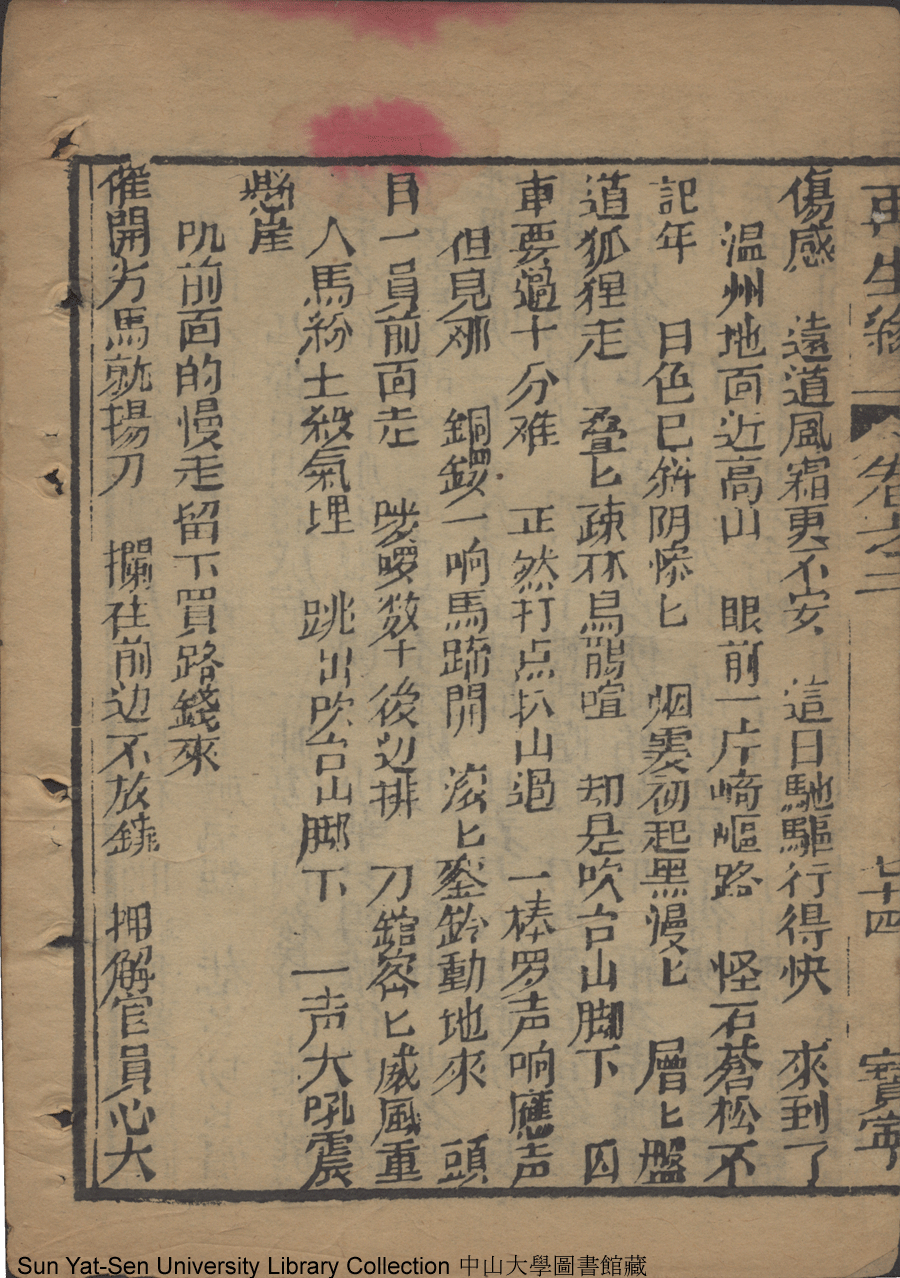 再生緣 卷之三 七十四 寶寧
傷感 遠道風霜更不安 這日馳驅行得快 來到了
温州地面近高山 眼前一片崎嶇路 怪石蒼松不
記年 日色已斜阴惨匕 烟雾初起黑漫匕 層匕盤
道狐狸走 叠匕疎林鳥鵲喧 却是吹台山脚下 囚
車要過十分难 正然打点扒山過 一棒罗声响應声
但見那 銅鑼一响馬蹄開 滚匕鑾鈴動地來 頭
目一員前面走 喽啰数千後边排 刀鎗密匕威風重
人馬紛土殺氣埋 跳出吹台山脚下 一声大吼震
懸崖
叽前面的慢走留下買路錢來
催開方馬就揚刀 攔住前边不放鏕 押解官員心大
Sun Yat-Sen University Library Collection 中山大學圖書館藏